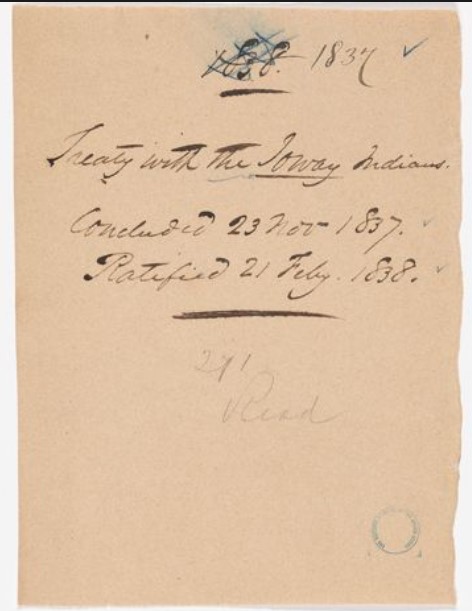 1838. 1837 ✓
Treaty with the Ioway Indians.
Concluded 23 Nov 1837.
Ratified 21 Feby. 1838.
291
Read